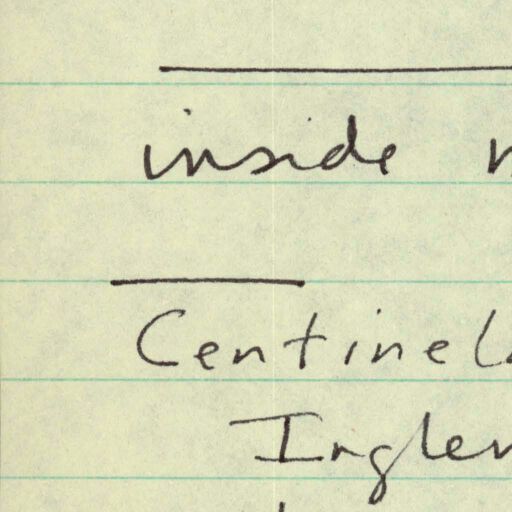 inside
Centinel
Ingle